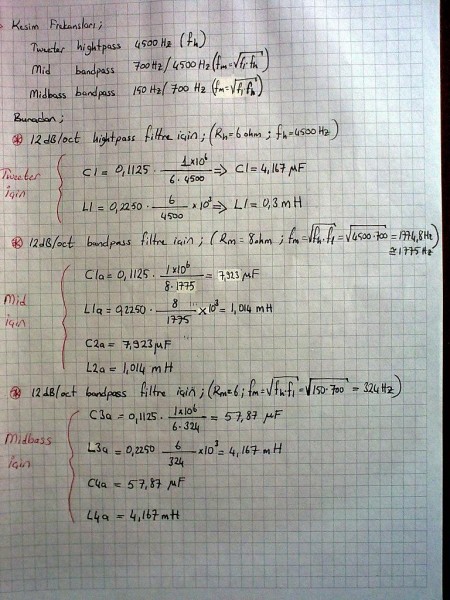 Kesim Frekansları;
Tweeter hightpass 4500 Hz (fh)
Mid bandpass 700Hz/4500 Hz (fm=√fl.fh)
Midbass bandpass 150Hz/700 Hz (fm=√fl.fh)
Buradan;
⊛ 12dB/oct hightpass filtre için; (Rh=6 ohm; fh=4500 Hz)
Tweeter için
C1 = 0,1125 · 1x10⁶ / 6·4500 ⇒ C1 = 4,167 µF
L1 = 0,2250 · 6 / 4500 x10³ ⇒ L1 = 0,3 mH
⊛ 12dB/oct bandpass filtre için; (Rm = 8ohm; fm=√fh.fl = √4500·700 = 1774,8Hz)
≅ 1775 Hz
Mid için
C1a = 0,1125 · 1x10⁶ / 8·1775 = 7,923 µF
L1a = 0,2250 · 8 / 1775 x10³ = 1,014 mH
C2a = 7,923 µF
L2a = 1,014 mH
⊛ 12dB/oct bandpass filtre için; (Rm=6; fm=√fh·fl = √150·700 = 324Hz)
Midbass için
C3a = 0,1125 · 1x10⁶ / 6·324 = 57,87 µF
L3a = 0,2250 6 / 324 x10³ = 4,167 mH
C4a = 57,87 µF
L4a = 4,167 mH